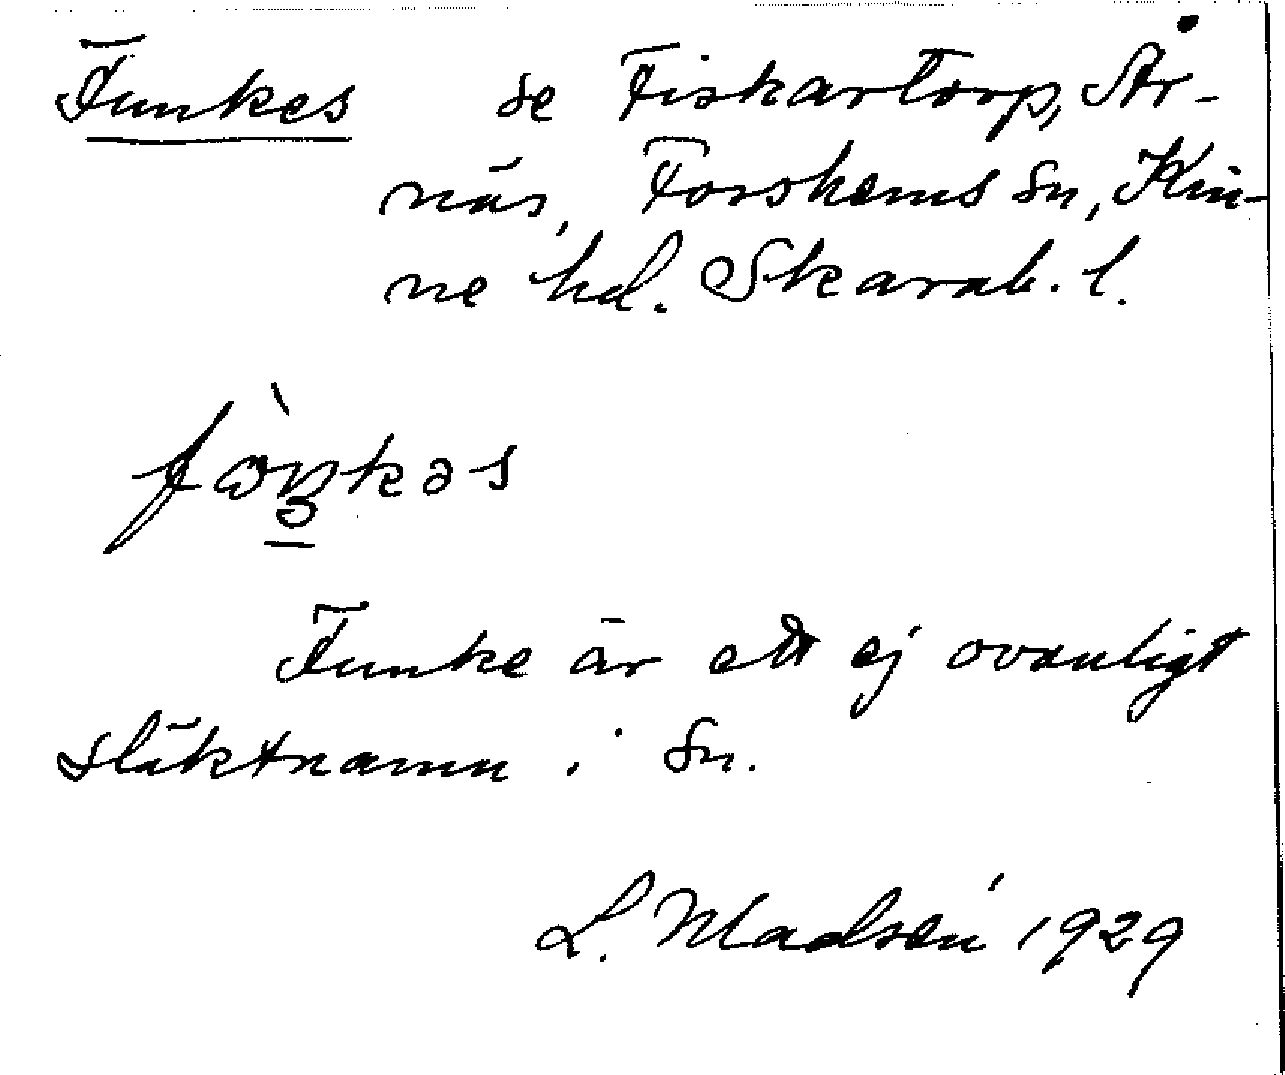 Funkes se Fiskartorp, År-
näs, Forshems sn, Kin-
ne hd. Skarab. l.
Funke är ett ej ovanligt
släktnamn i sn.
L. Madsén 1929